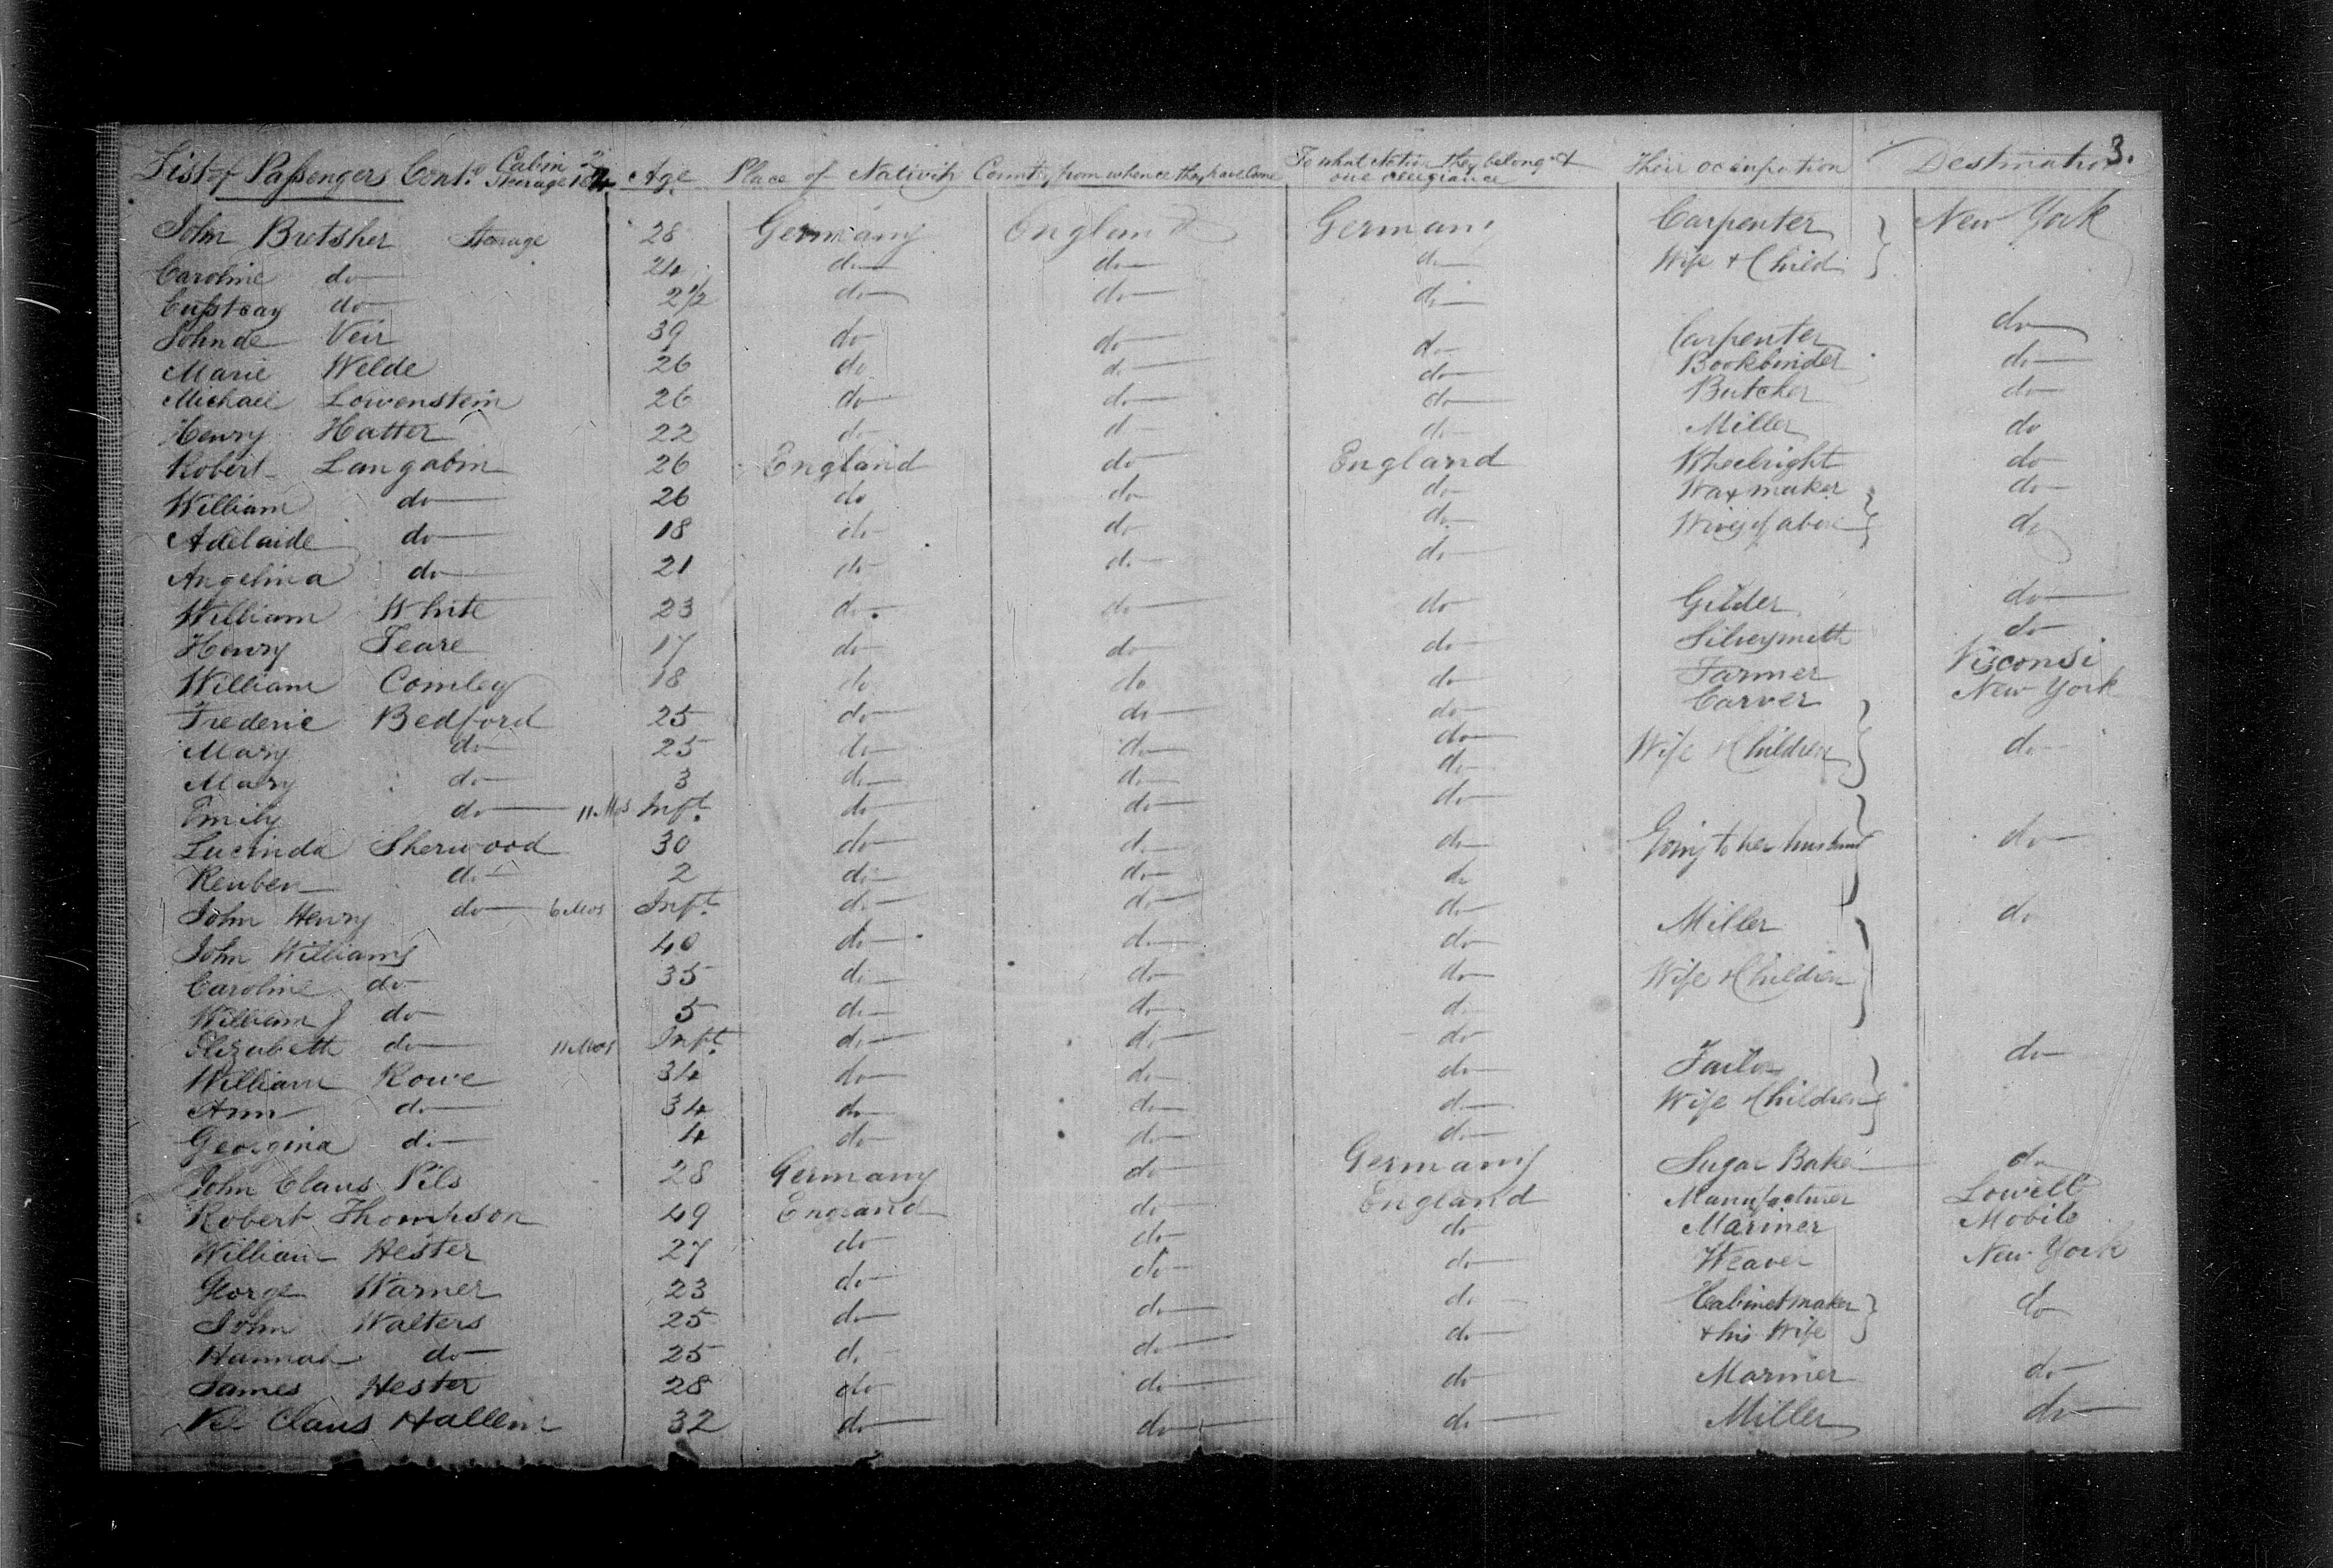 List of Passengers Cont.d Cabin 2 Steerage Age Place of Nativity Country from whence they have Come To what Nation they belong & owe allegiance Their occupation Destination 3.
John Butsher Steerage 28 Germany England Germany Carpenter New York
Caroline do 24 do do do Wife & Child
do 2 1/2 do do do
John de Veir 39 do do do Carpenter do
Marie Welde 26 do do do Bookbinder do
Michael Lowenstein 26 do do do Butcher do
Henry Hatter 22 do do do Miller do
Robert Langabin 26 England do England Wheelright do
William do 26 do do do Waxmaker do
Adelaide do 18 do do do Wives of above do
Angelina do 21 do do do
William White 23 do do do Gilder do
Henry Teare 17 do do do Silversmith do
William Comley 18 do do do Farmer Visconsi
Frederic Bedford 25 do do do Carver New York
Mary do 25 do do do Wife & Children do
Mary do 3 do do do
Emily do 11 Mos Inft. do do do
Lucinda Sherwood 30 do do do Going to her husband do
Reuben do 2 do do do
John Henry do 6 Mos Inft. do do do
John Williams 40 do do do Miller do
Caroline do 35 do do do Wife & Children
William J do 5 do do do
Elizabeth do 11 Mos Inft. do do do
William Rowe 34 do do do Tailor do
Ann do 34 do do do Wife Children
Georgina do 4 do do do
John Claus Pils 28 Germany do Germany Sugar Baker do
Robert Thompson 49 England do England Manufacturer Lowell
William Hester 27 do do do Mariner Mobile
George Warner 23 do do do Weaver New York
John Walters 25 do do do Cabinetmaker do
Hannah do 25 do do do & his Wife
James Hester 28 do do do Mariner do
Claus Hallem 32 do do do Miller do